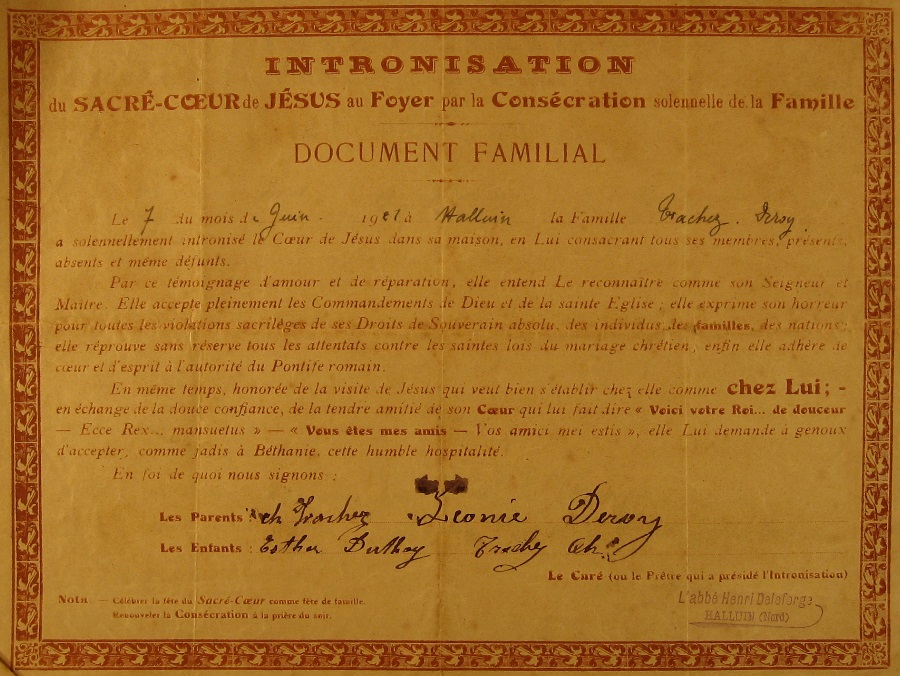 INTRONISATION
du SACRÉ-CŒUR de JÉSUS au Foyer par la Consécration solennelle de la Famille
DOCUMENT FAMILIAL
Le 7 du mois de Juin 1921 à Halluin la Famille Trachez. Deroy
a solennellement intronisé le Cœur de Jésus dans sa maison, en Lui consacrant tous ses membres, présents,
absents et même défunts.
Par ce témoignage d'amour et de réparation, elle entend Le reconnaître comme son Seigneur et
Maître. Elle accepte pleinement les Commandements de Dieu et de la sainte Eglise ; elle exprime son horreur
pour toutes les violations sacrilèges de ses Droits de Souverain absolu, des individus, des familles, des nations ;
elle réprouve sans réserve tous les attentats contre les saintes lois du mariage chrétien ; enfin elle adhère de
cœur et d'esprit à l'autorité du Pontife romain.
En même temps, honorée de la visite de Jésus qui veut bien s'établir chez elle comme chez Lui ; -
en échange de la douce confiance, de la tendre amitié de son Cœur qui lui fait dire « Voici votre Roi... de douceur
— Ecce Rex... mansuetus » — « Vous êtes mes amis — Vos amici mei estis », elle Lui demande à genoux
d'accepter, comme jadis à Béthanie, cette humble hospitalité.
En foi de quoi nous signons :
Les Parents : ch Trachez Léonie Deroy
Les Enfants : Esther Trachez Ch.
Le Curé (ou le Prêtre qui a présidé l'Intronisation)
Nota. — Célébrer la fête du Sacré-Cœur comme fête de famille.
Renouveler la Consécration à la prière du soir.
L'abbé Henri Delaforge
HALLUIN (Nord)